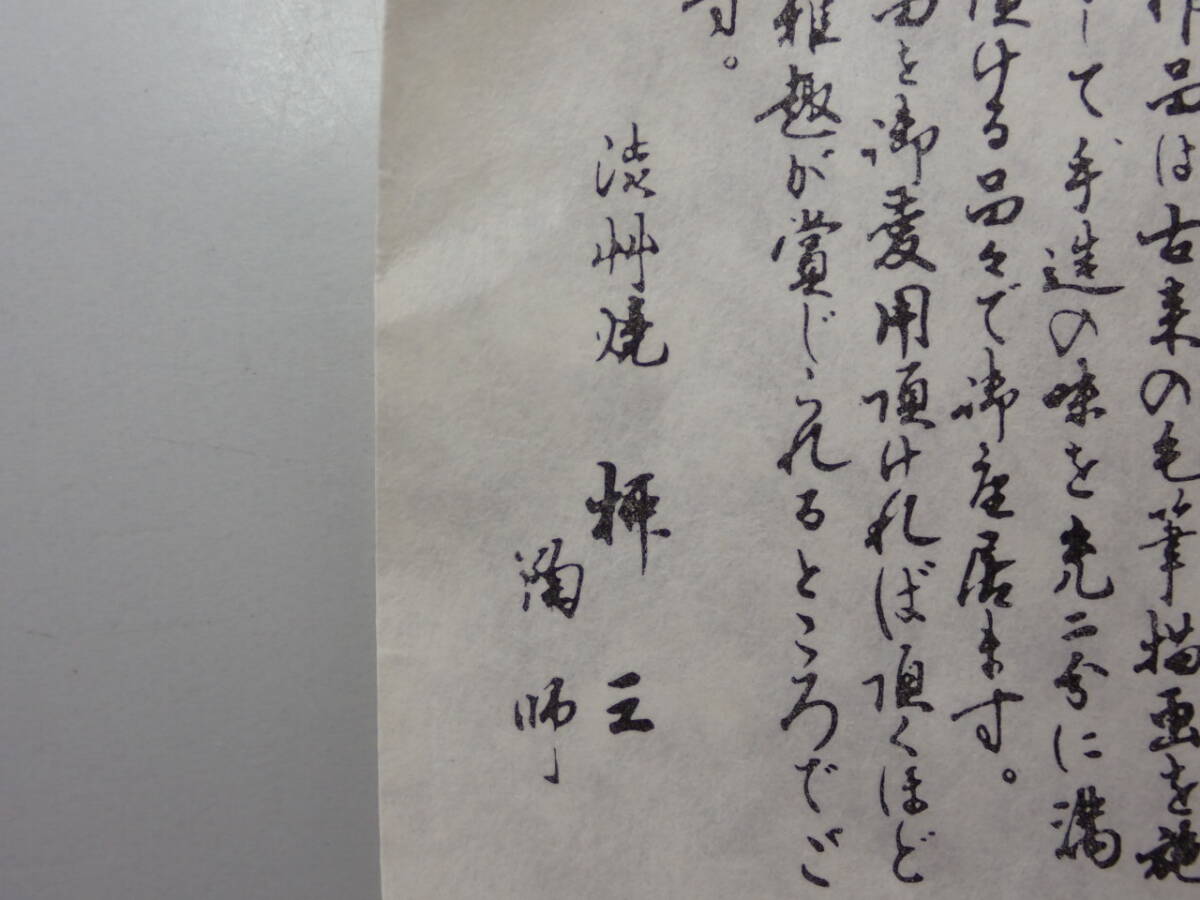 作品は古来の毛筆描画を施
して手造の味を充二分に満
頂ける品々で御座居ます。
品を御愛用頂ければ頂くほど
雅趣が賞じられるところでご
す。
焼
陶師